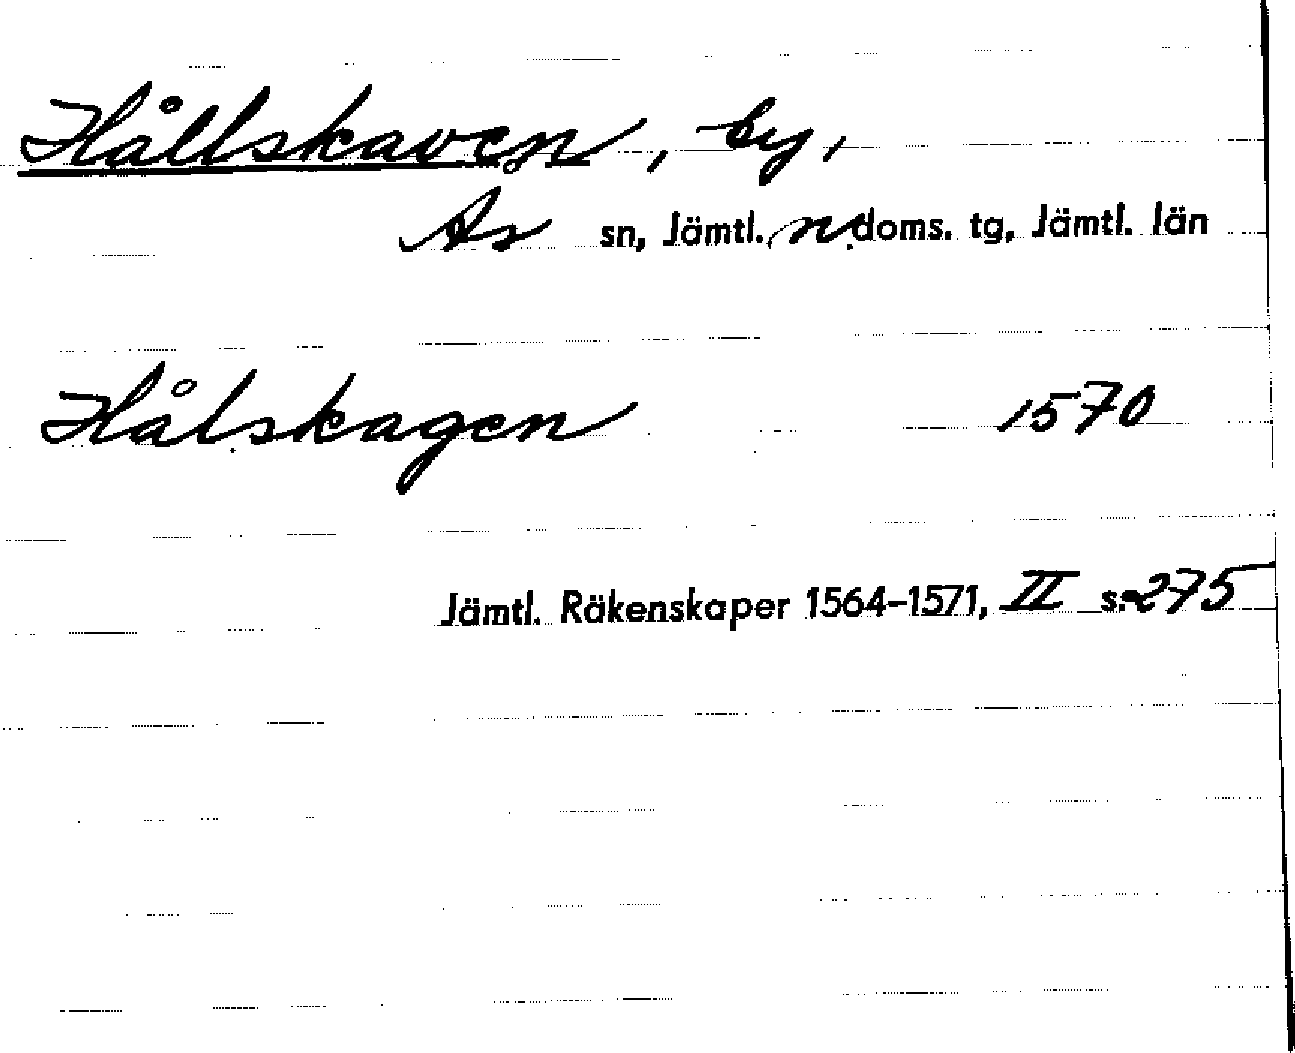 Hållskaven, by,
Ås sn, Jämtl. n. doms. tg, Jämtl. län
Hålskagen 1570
Jämtl. Räkenskaper 1564-1571, II s. 275